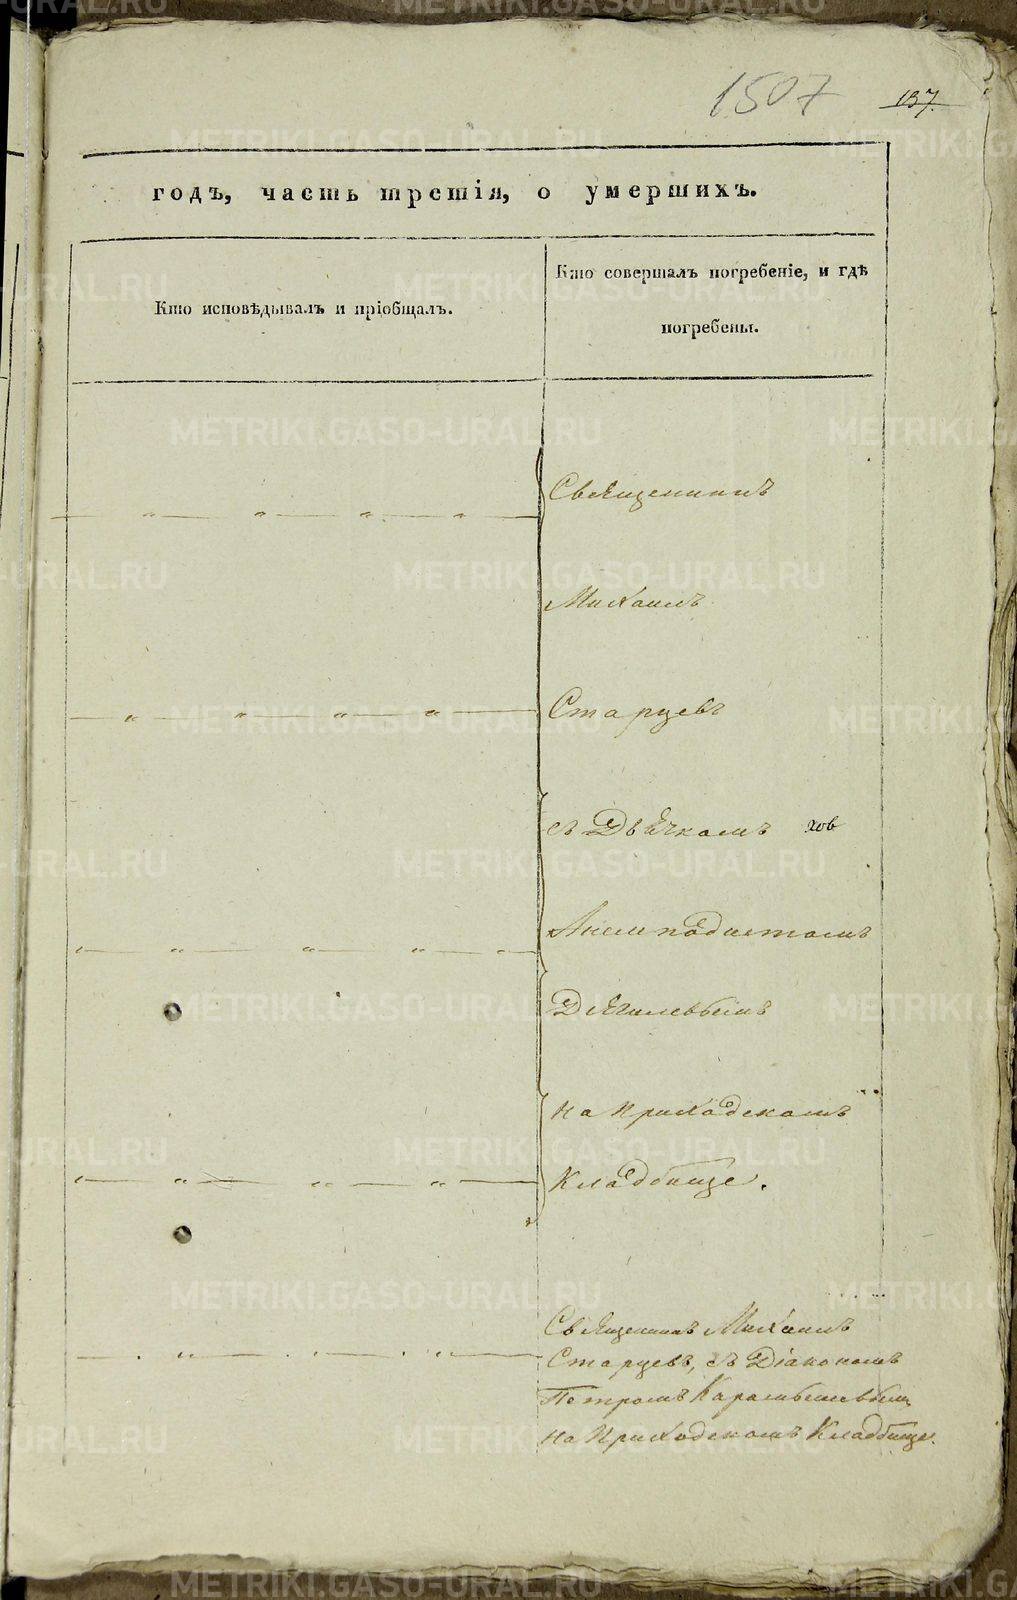 1507 137.
годъ, часть третія, о умершихъ.
Кто исповѣдывалъ и пріобщалъ.
Кто совершалъ погребеніе, и гдѣ
погребены.
Священникъ
Михаилъ
Старцевъ
съ Дьячкомъ
Анемподистомъ
Дягилевымъ
на Приходскомъ
Кладбище.
Священникъ Михаилъ
Старцевъ, съ Діакономъ
Петромъ
на Приходскомъ Кладбище.
METRIKI.GASO-URAL.RU